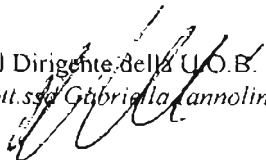 l Dirigente della U.O.B.
tt.ssa Gabriella Iannolin